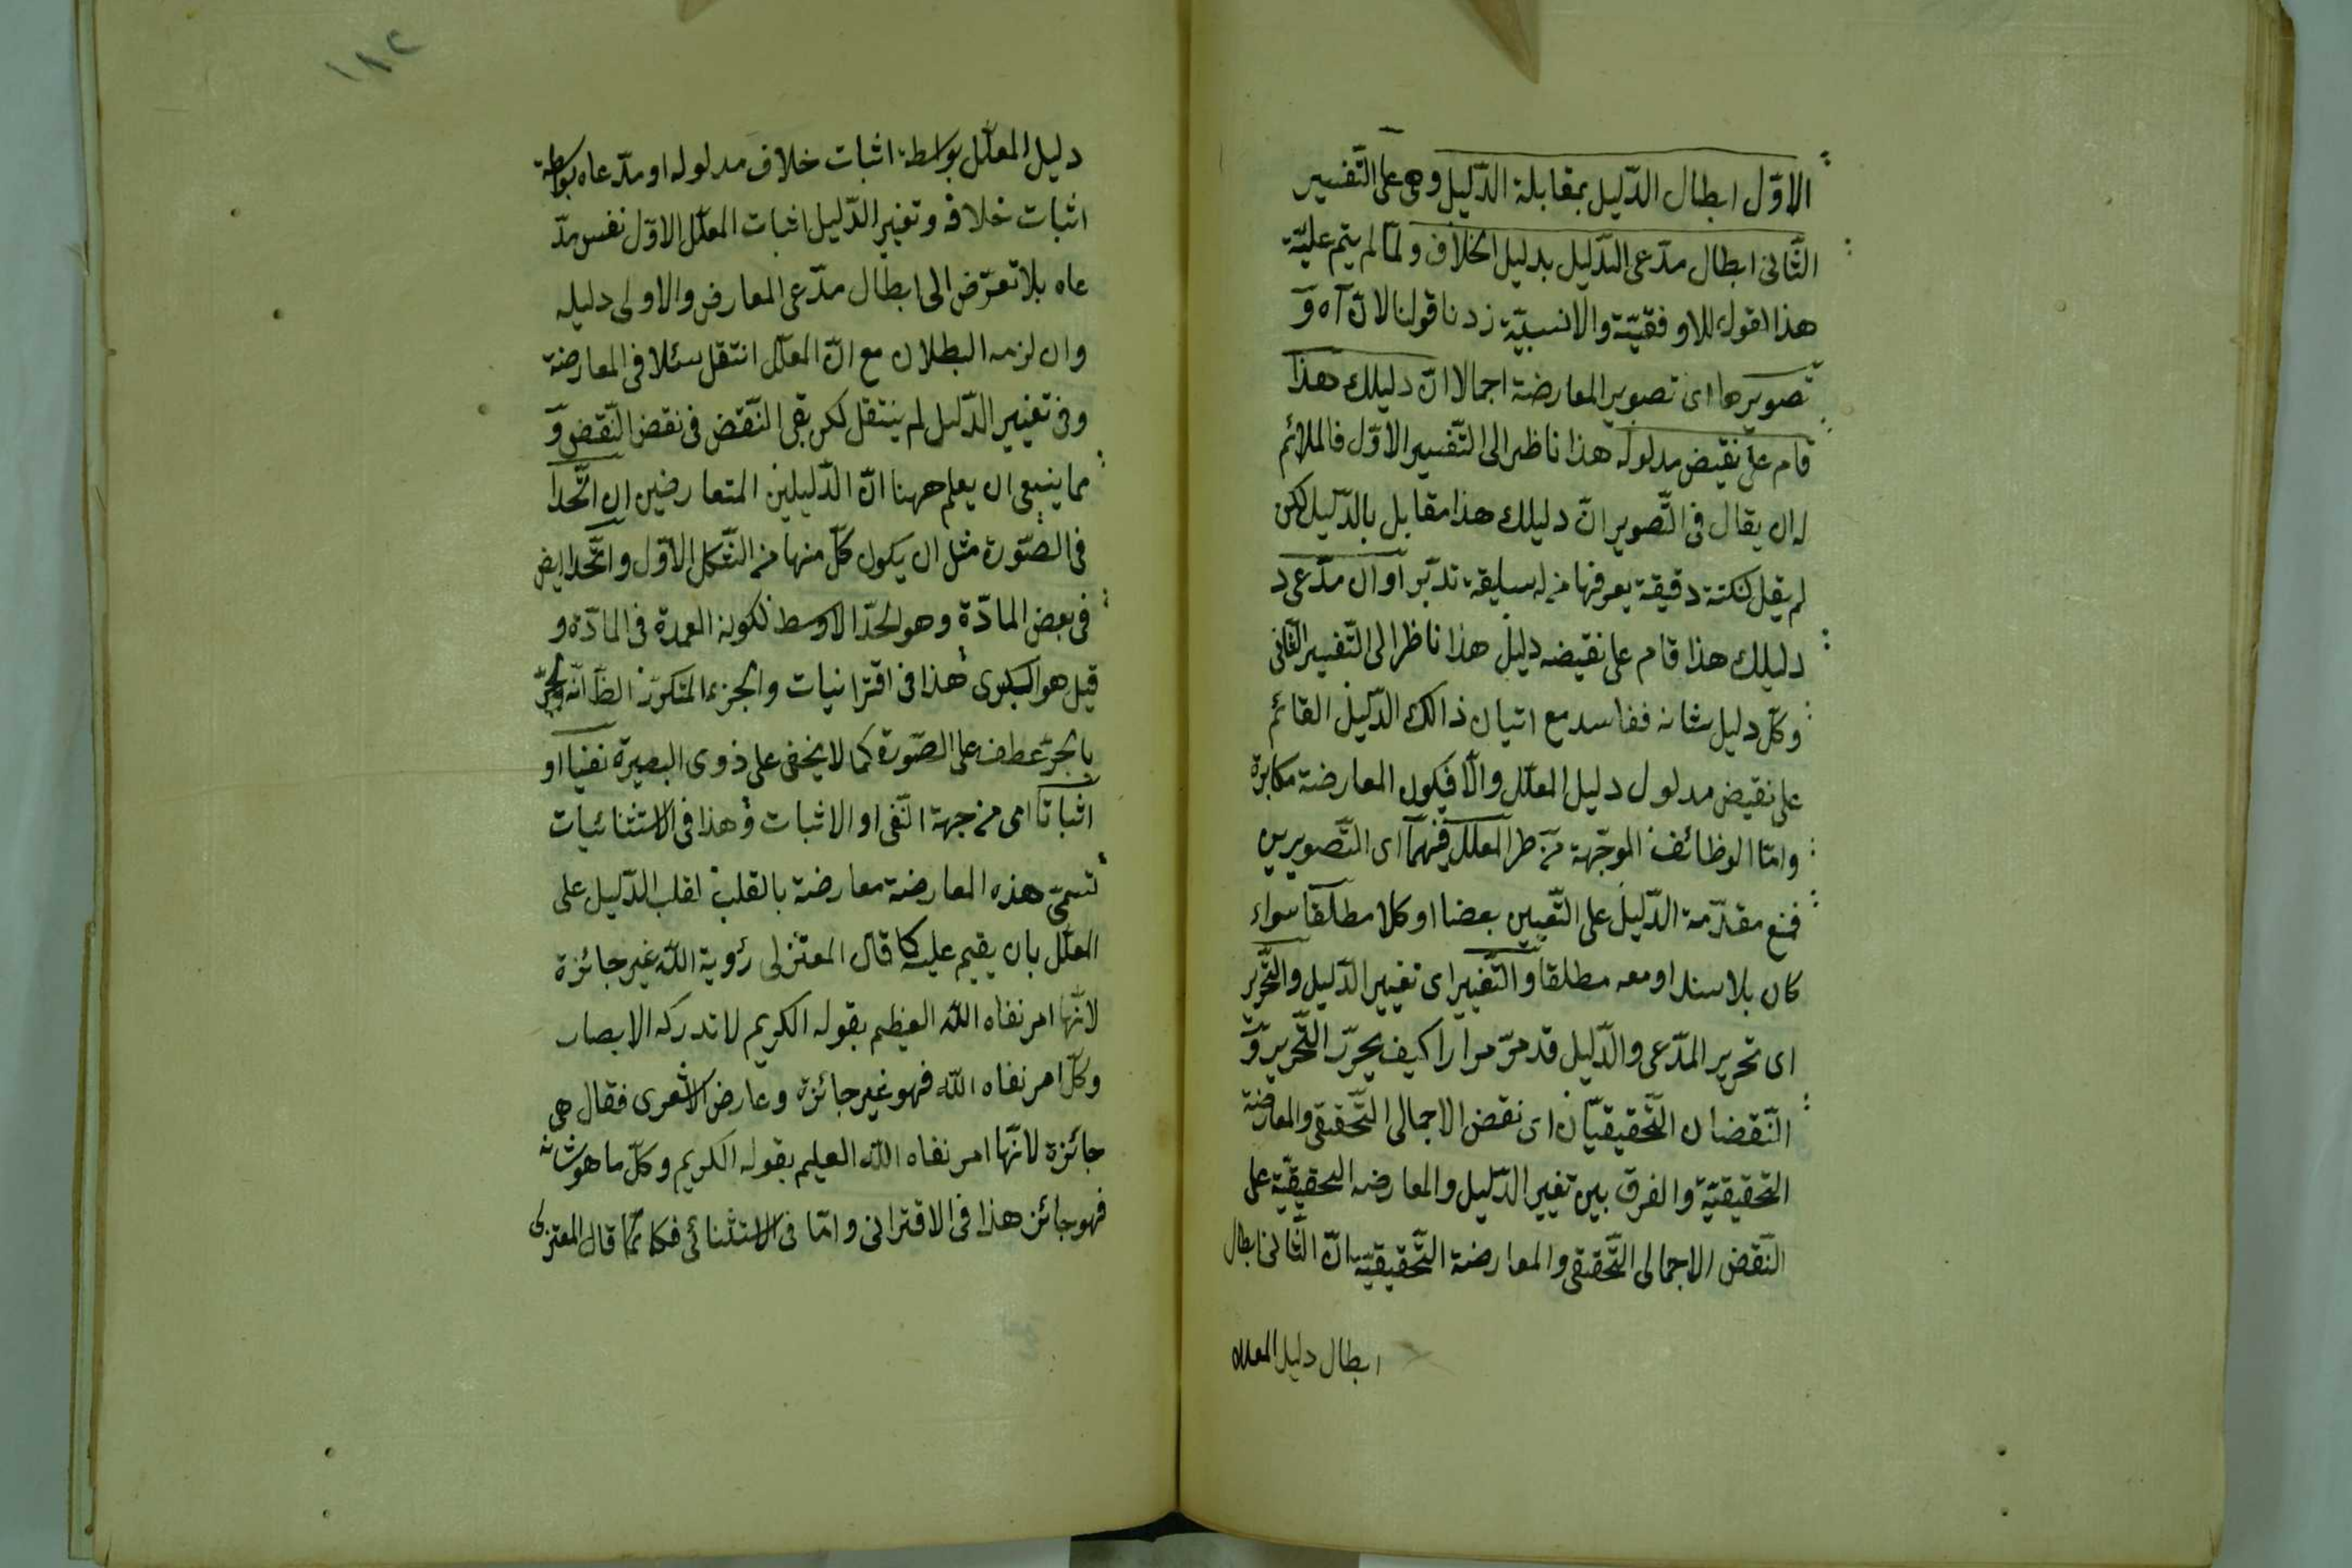 الاوّل ابطال الدّليل بمقابلة الدّليل وهى على التّفسير
الثّانى ابطال مدّعى الدّليل بدليل الخلاف ولمّا لم يتمّ عليّة
هذا القول للاوفقيّة والانسبيّة زدنا قولنا لانّ آه وَ
تصويرها اى تصوير المعارضة اجمالا انّ دليلك هذا
قام على نقيض مدلوله هذا ناظر الى التّفسير الاوّل فالملائم
له ان يقال فى التّصوير انّ دليلك هذا مقابل بالدّليل لكن
لم يقل لنكتة دقيقة يعرفها من له سليقة تدبّر او ان مدّعى د
دليلك هذا قام على نقيضه دليل هذا ناظر الى التّفسير الثّانى
وكلّ دليل شانه ففاسد مع اتيان ذالك الدّليل القائم
على نقيض مدلول دليل المعلّل والّا فيكون المعارضة مكابرة
وامّا الوظائف الموجّهة من طر المعلّل فيهما اى التّصويرين
فمنع مقدّمة الدّليل على التّعيين بعضا او كلا مطلقا سواء
كان بلا سند او معه مطلقا والتّغيير اى تغيير الدّليل والتّحرير
اى تحرير المدّعى والدّليل قد مرّ مرارا كيف يحرّر التّحرير وَ
النّقضان التّحقيقيّان اى نقض الاجمالى التّحقيقى والمعارضة
التّحقيقيّة والفرق بين تغيير الدّليل والمعارضه التحقيقيّة على
النّقض الاجمالى التّحقيقى والمعارضة التّحقيقيّة انّ الثّانى ابطال
ابطال دليل المعلل
١٨٢
دليل المعلّل بواسطة اثبات خلاف مدلوله او مدّعاه بواسطة
اثبات خلافه وتغيير الدّليل اثبات المعلّل الاوّل نفس مدّ
عاه بلا تعرّض الى ابطال مدّعى المعارض والاولى دليله
وان لزمه البطلان مع انّ المعلّل انتقل سئلا فى المعارضة
وفى تغيير الدّليل لم ينتقل لكن بقى النّقض فى نقض النّقض وَ
مما ينبغى ان يعلم ههنا انّ الدّليلين المتعارضين ان اتّحدا
فى الصّورة مثل ان يكون كلّ منهما من الشّكل الاوّل واتّحدا ايض
فى بعض المادّة وهو الحدّ الاوسط لكونه العمدة فى المادّة و
قيل هو الكبرى هذا فى اقترانيات والجزء المتكرّر الظّ انّه والجرّ
بالجرّ عطف على الصّورة كما لا يخفى على ذوى البصيرة نفيا او
اثباتا اى من جهة النّفى او الاثبات وهذا فى الاستثنائيات
تسمّى هذه المعارضة معارضة بالقلب لقلب الدّليل على
المعلّل بان يقيم عليه كما قال المعتزلى رؤية اللّه غير جائزة
لانّها امر نفاه اللّه العظيم بقوله الكريم لا تدركه الابصار
وكلّ امر نفاه اللّه فهو غير جائزة وعارض الاشعرى فقال هى
جائزة لانّها امر نفاه اللّه العليم بقوله الكريم وكلّ ما هو شانه
فهو جائز هذا فى الاقترانى وامّا فى الاستثنائى فكانّما قال المعتزلى